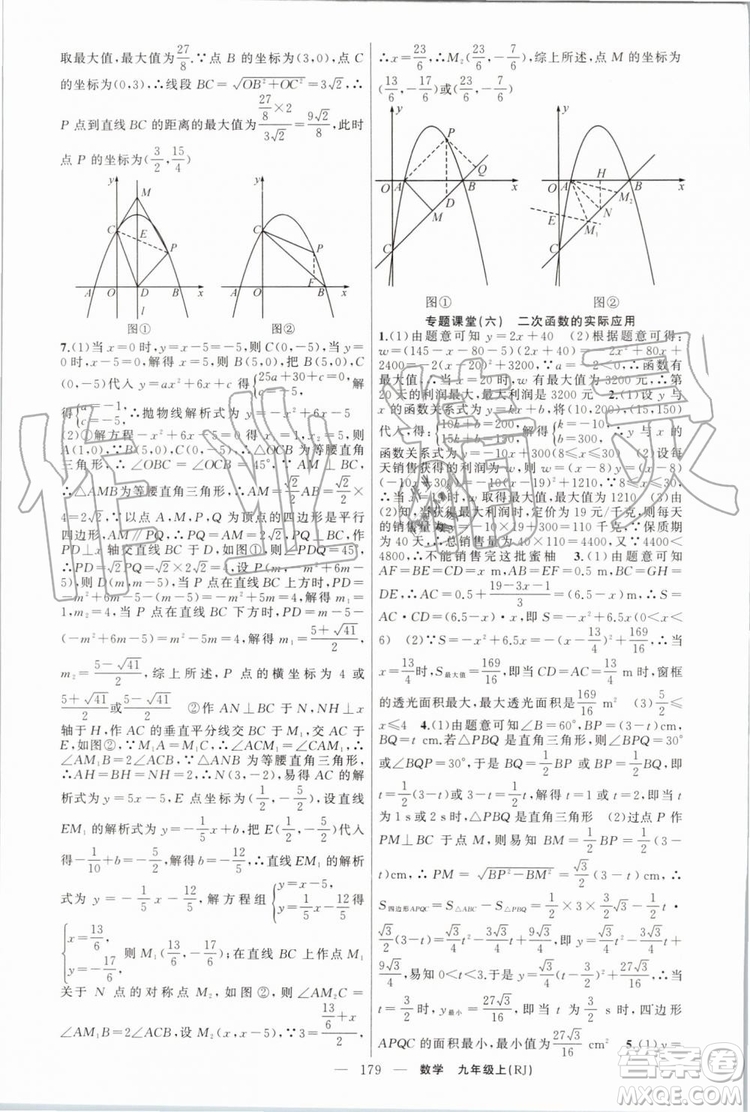 取最大值,最大值为27/8.∵点 B 的坐标为(3,0),点 C
的坐标为(0,3),∴线段 BC=√(OB²+OC²)=3√2,∴
P 点到直线 BC 的距离的最大值为(27/8×2)/(3√2)=9√2/8,此时
点 P 的坐标为(3/2,15/4)
图① 图②
7.(1)当 x=0 时,y=x-5=-5,则 C(0,-5),当 y=
0 时,x-5=0,解得 x=5,则 B(5,0),把 B(5,0),C(0,
-5)代入 y=ax²+6x+c 得{25a+30+c=0, c=-5,解
得{a=-1, c=-5,∴抛物线解析式为 y=-x²+6x-5
(2)①解方程-x²+6x-5=0 得 x₁=1,x₂=5,则
A(1,0),∵B(5,0),C(0,-5),∴△OCB 为等腰直
角三角形,∴∠OBC=∠OCB=45°,∵AM⊥BC,
∴△AMB为等腰直角三角形,∴AM=√2/2AB=√2/2×4
=2√2,∵以点 A,M,P,Q 为顶点的四边形是平行
四边形,AM∥PQ,∴PQ=AM=2√2,PQ⊥BC,作
PD⊥x 轴交直线 BC 于 D,如图①,则∠PDQ=45°,
∴PD=√2PQ=√2×2√2=4,设 P(m,-m²+6m-
5),则 D(m,m-5),当 P 点在直线 BC 上方时,PD=
-m²+6m-5-(m-5)=-m²+5m=4,解得 m₁=
1,m₂=4,当 P 点在直线 BC 下方时,PD=m-5-
(-m²+6m-5)=m²-5m=4,解得 m₁=(5+√41)/2,
m₂=(5-√41)/2,综上所述,P 点的横坐标为 4 或
(5+√41)/2或(5-√41)/2 ②作 AN⊥BC 于 N,NH⊥x
轴于 H,作 AC 的垂直平分线交 BC 于 M₁,交 AC 于
E(如图②),∵M₁A=M₁C,∴∠ACM₁=∠CAM₁,
∴∠AM₁B=2∠ACB,∵△ANB 为等腰直角三角形,
∴AH=BH=NH=2,∴N(3,-2),易得 AC 的解析
式为 y=5x-5,E 点坐标为(1/2,-5/2),设直线
EM₁ 的解析式为 y=-1/5x+b,把 E(1/2,-5/2)代入
得-1/10+b=-5/2,解得 b=-12/5,∴直线 EM₁ 的解析
式为 y=-1/5x-12/5,解方程组{y=x-5, y=-1/5x-12/5得
{x=13/6, y=-17/6,则 M₁(13/6,-17/6);在直线 BC 上作点 M₁
关于 N 点的对称点 M₂,如图②,则∠AM₂C=
∠AM₁B=2∠ACB,设 M₂(x,x-5),∵3=(13/6+x)/2,
∴x=23/6,∴M₂(23/6,-7/6),综上所述,点 M 的坐标为
(13/6,-17/6)或(23/6,-7/6)
图① 图②
专题课堂(六) 二次函数的实际应用
1.(1)由题意可知 y=2x+40 (2)根据题意可得:
w=(145-x-80-5)(2x+40)=-2x²+80x+
2400=-2(x-20)²+3200,∵a=-2<0,∴函数有
最大值,∴当 x=20 时,w 有最大值为 3200 元,∴第
20 天的利润最大,最大利润是 3200 元 2.(1)设 y 与
x 的函数关系式为 y=kx+b,将(10,200),(15,150)
代入,得:{10k+b=200, 15k+b=150,解得:{k=-10, b=300,∴y 与 x 的
函数关系式为 y=-10x+300 (2)设每
天销售获得的利润为 w,则 w=(x-8)y=(x-8)
(-10x+300)=-10(x-19)²+1210,∵8≤x≤30,
∴当 x=19 时,w 取得最大值,最大值为 1210 (3)由
(2)知,当获得最大利润时,定价为 19 元/千克,则每天
的销售量为 y=-10×19+300=110 千克,∵保质期
为 40 天,∴总销售量为 40×110=4400,又∵4400<
4800,∴不能销售完这批蜜柚 3.(1)由题意可知
AF=BE=CD=x m,AC=DF,BC=EF,AB=
DE,∴AC=0.5+(19-3x-1)/3=(6.5-x)m,∴S=
AC·CD=(6.5-x)·x,即 S=-x²+6.5x(0<x<
6) (2)∵S=-x²+6.5x=-(x-13/4)²+169/16,∴当 x=
13/4时,S最大值=169/16,此时 CD=AC=13/4 m,即当 CD=AC=13/4 m时,窗框
的透光面积最大,最大透光面积是169/16 m² (3)5/2≤x
≤4 4.(1)由题意可知∠B=60°,BP=(3-t)cm,
BQ=t cm.若△PBQ 是直角三角形,则∠BPQ=30°
或∠BQP=30°,于是 BQ=1/2BP 或 BP=1/2BQ,即
t=1/2(3-t)或 3-t=1/2t.解得 t=1 或 t=2,即当 t
为 1 s 或 2 s 时,△PBQ 是直角三角形 (2)过点 P 作
PM⊥BC 于点 M,则易知 BM=1/2BP=1/2(3-
t)cm,∴PM=√(BP²-BM²)=√3/2(3-t)cm,∴
S四边形APQC=S△ABC-S△PBQ=1/2×3×3√3/2-1/2t·
√3/2(3-t)=√3/4t²-3√3/4t+9√3/4,即 y=√3/4t²-3√3/4t+
9√3/4,易知 0<t<3,于是 y=√3/4(t-3/2)²+27√3/16,∴
当 t=3/2时,y最小=27√3/16,即当 t 为3/2 s 时,四边形
APQC 的面积最小,最小值为27√3/16 cm² 5.(1)y=
— 179 — 数学 九年级上(RJ)
作业精灵
答案圈